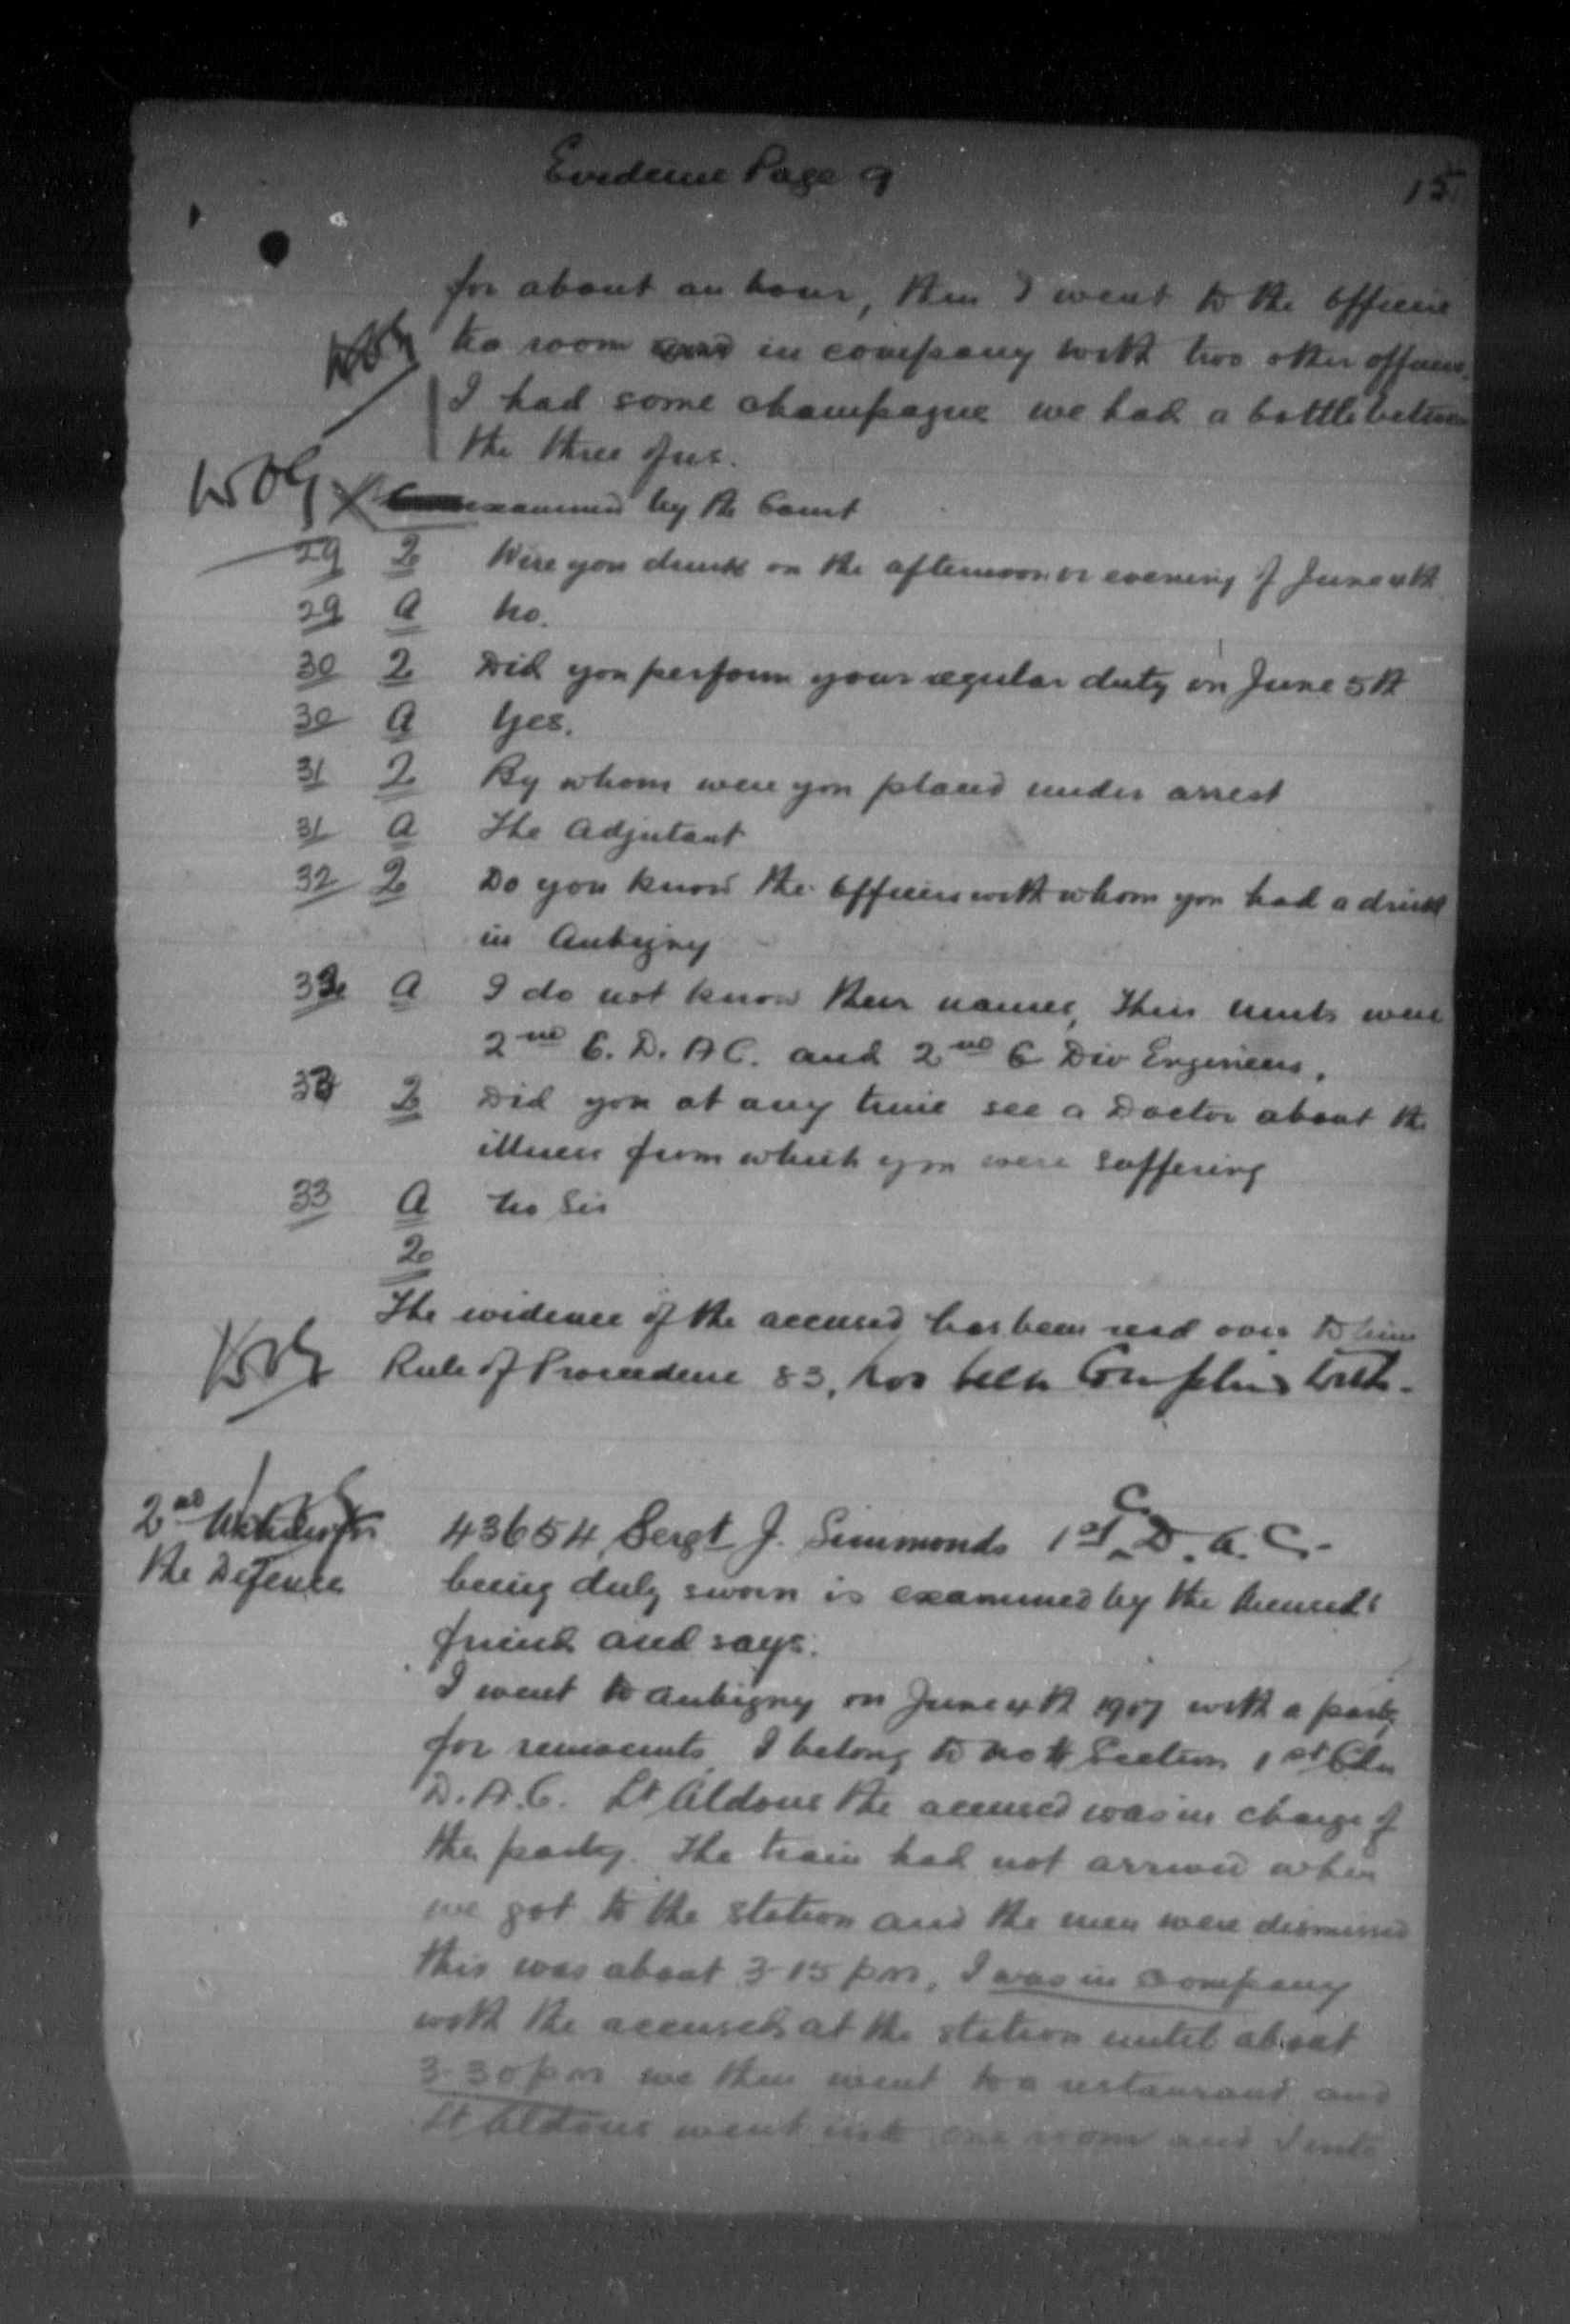 Evidence Page 9
15
for about an hour, then I went to the Officers
tea room and in company with two other officers.
I had some champagne we had a bottle between
the three of us.
examined by the Court
29 Q Were you drunk on the afternoon or evening of June 4th
29 A No.
30 Q Did you perform your regular duty on June 5th
30 A Yes.
31 Q By whom were you placed under arrest
31 A The Adjutant
32 Q Do you know the Officers with whom you had a drink
in Aubigny
32 A I do not know their names, their units were
2nd C. D. A C. and 2nd C Div Engineers.
33 Q Did you at any time see a Doctor about the
illness from which you were suffering
33 A No Sir
Q
The evidence of the accused has been read over to him
Rule of Procedure 83, has been Complied with.
2nd Witness for
the Defence
43654 Sergt J. Simmonds 1st C. D. A. C.
being duly sworn is examined by the Accused's
friend and says.
I went to Aubigny on June 4th 1917 with a party
for remounts, I belong to No Section 1st Cdn
D. A. C. Lt Aldous the accused was in charge of
the party. The train had not arrived when
we got to the station and the men were dismissed
this was about 3-15 pm, I was in company
with the accused at the station until about
3-30 pm we then went to a restaurant and
Lt Aldous went into one room and I into